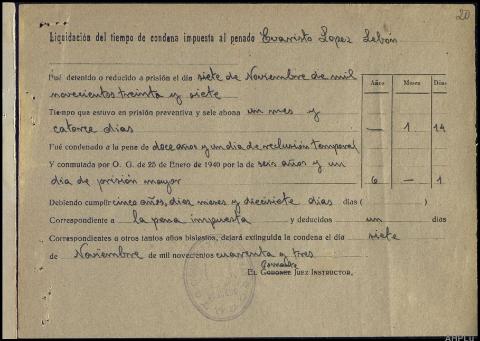 20
Liquidación del tiempo de condena impuesta al penado Evaristo Lopez Lebón
Fué detenido o reducido a prisión el día siete de Noviembre de mil
novecientos treinta y siete
Años Meses Días
Tiempo que estuvo en prisión preventiva y sele abona un mes y
catorce dias — 1 14
Fué condenado a la pena de doce años y un dia de reclusión temporal
Y conmutada por O. G. de 25 de Enero de 1940 por la de seis años y un
dia de prisión mayor 6 — 1
Debiendo cumplir cinco años, diez meses y diecisiete dias días ( )
Correspondiente a la pena impuesta y deducidos un días
Correspondientes a otros tantos años bisiestos, dejará extinguida la condena el día siete
de Noviembre de mil novecientos cuarenta y tres
El Juez Instructor,